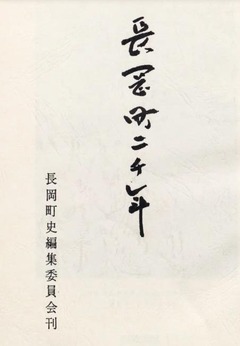 長岡町二千年
長岡町史編集委員会刊